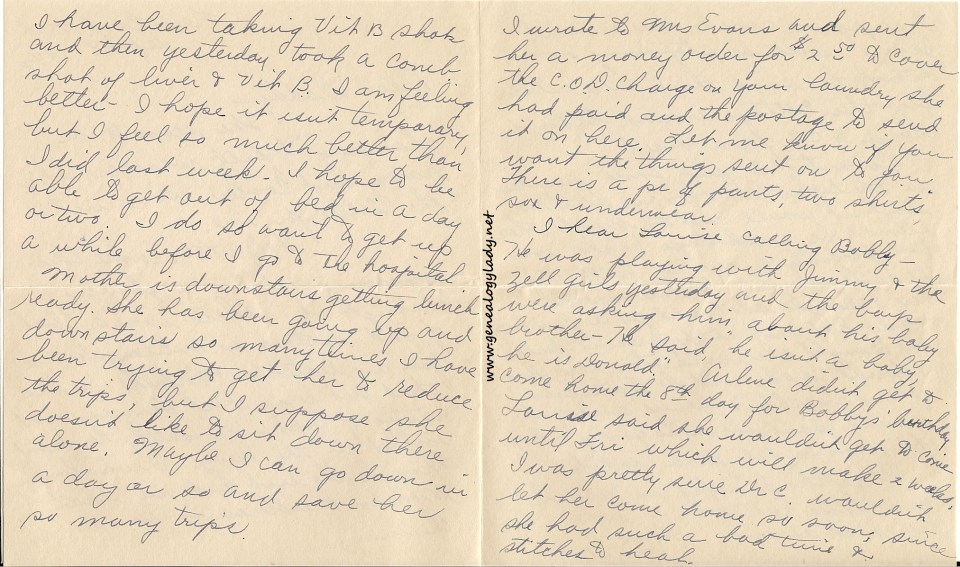 I have been taking Vit B shots
and then yesterday took a comb.
shot of liver & Vit B. I am feeling
better - I hope it isn't temporary,
but I feel so much better than
I did last week - I hope to be
able to get out of bed in a day
or two. I do so want to get up
a while before I go to the hospital.
Mother is downstairs getting lunch
ready. She has been going up and
down stairs so many times I have
been trying to get her to reduce
the trips, but I suppose she
doesn't like to sit down there
alone. Maybe I can go down in
a day or so and save her
so many trips.
I wrote to Mrs Evans and sent
her a money order for $2 50 to cover
the C.O.D. charge on your laundry she
had paid and the postage to send
it on here. Let me know if you
want the things sent on to you
There is a pr of pants, two shirts
sox & underwear.
I hear Louise calling Bobby -
He was playing with Jimmy & the
Zell girls yesterday and the boys
were asking him, about his baby
brother - He said, "he isn't a baby,
he is Donald." Arlene didn't get to
come home the 8th day for Bobby's birthday
Louise said she wouldn't get to come
until Fri which will make 2 weeks,
I was pretty sure Dr C. wouldn't
let her come home so soon, since
she had such a bad time &
stitches to heal.
www.genealogylady.net